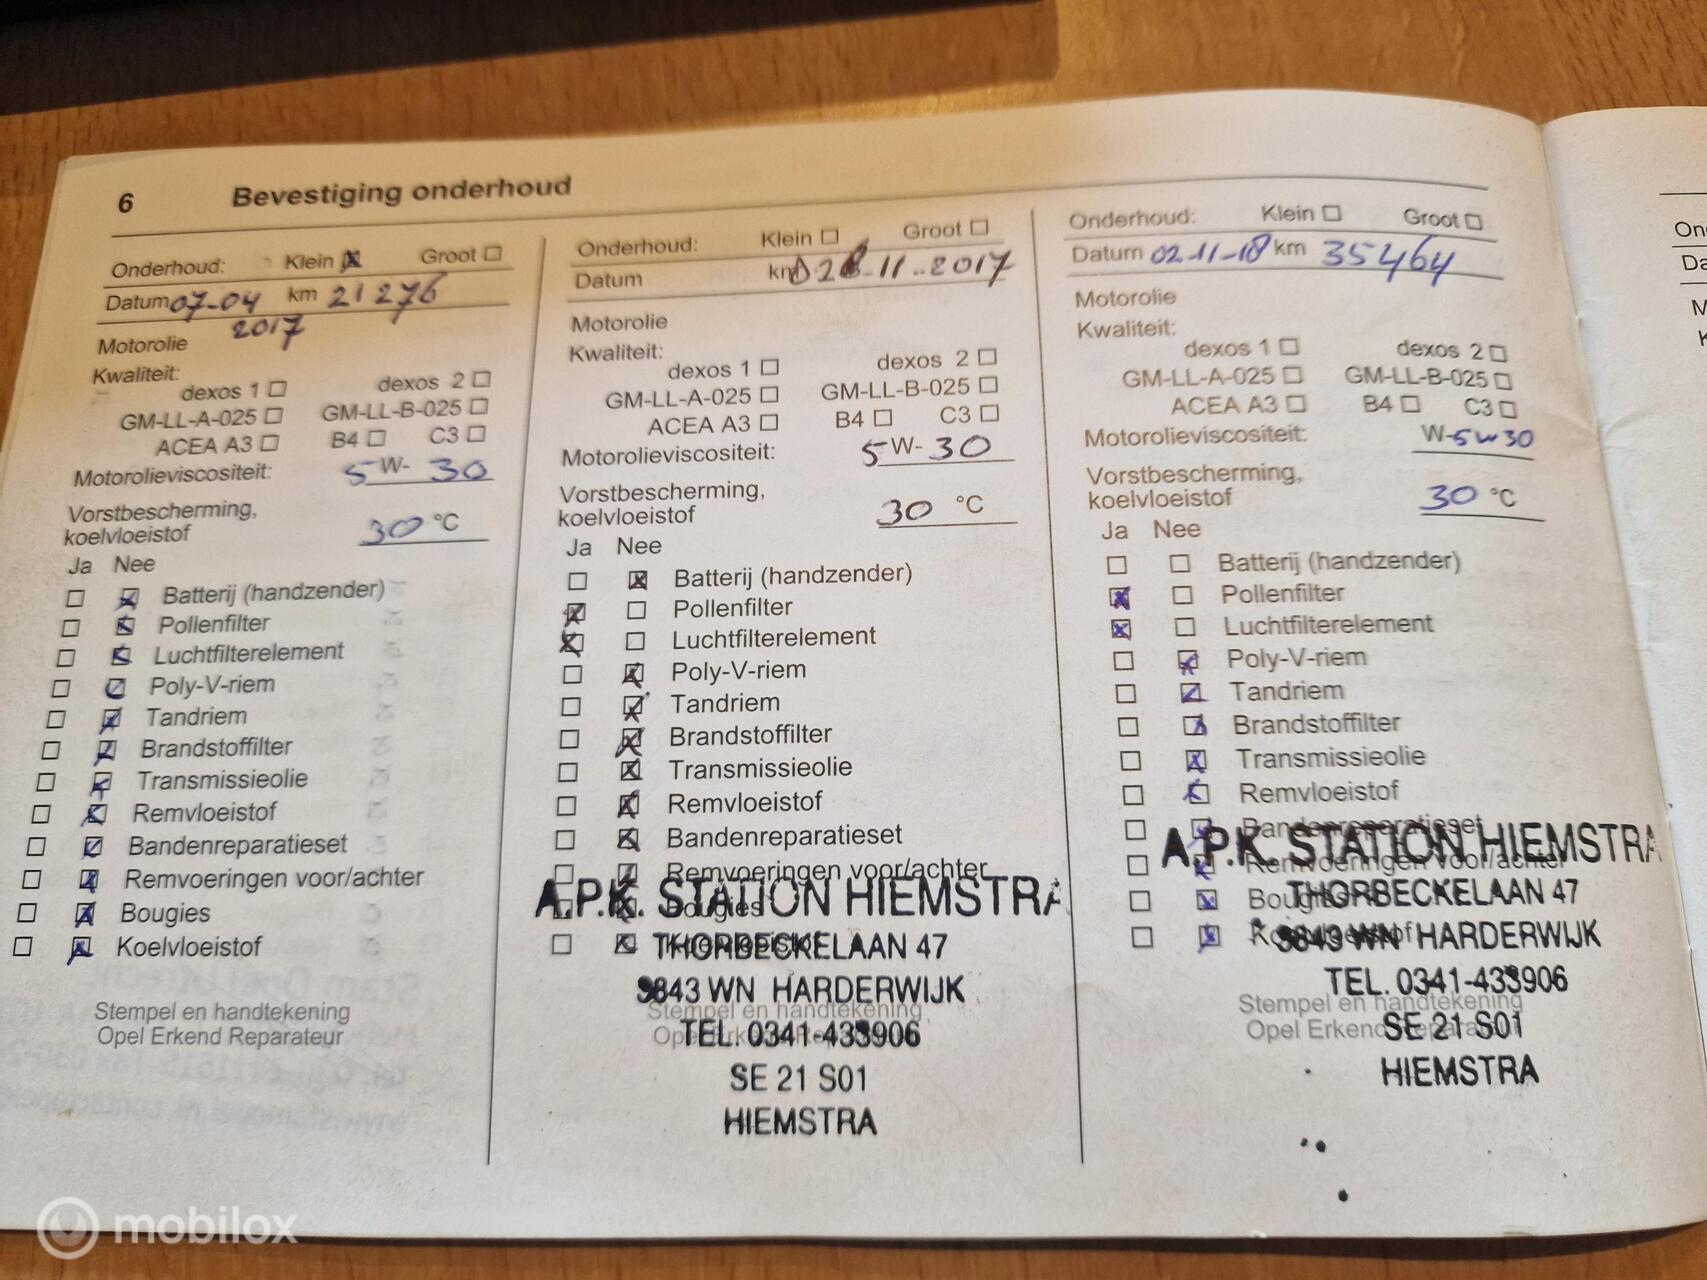 6 Bevestiging onderhoud
Onderhoud: Klein Groot
Datum 07-04 km 21276
2017
Motorolie
Kwaliteit:
dexos 1 dexos 2
GM-LL-A-025 GM-LL-B-025
ACEA A3 B4 C3
Motorolieviscositeit: 5 W- 30
Vorstbescherming,
koelvloeistof 30 °C
Ja Nee
Batterij (handzender)
Pollenfilter
Luchtfilterelement
Poly-V-riem
Tandriem
Brandstoffilter
Transmissieolie
Remvloeistof
Bandenreparatieset
Remvoeringen voor/achter
Bougies
Koelvloeistof
Stempel en handtekening
Opel Erkend Reparateur
Onderhoud: Klein Groot
Datum km 11..2017
Motorolie
Kwaliteit:
dexos 1 dexos 2
GM-LL-A-025 GM-LL-B-025
ACEA A3 B4 C3
Motorolieviscositeit: 5 W- 30
Vorstbescherming,
koelvloeistof 30 °C
Ja Nee
Batterij (handzender)
Pollenfilter
Luchtfilterelement
Poly-V-riem
Tandriem
Brandstoffilter
Transmissieolie
Remvloeistof
Bandenreparatieset
Remvoeringen voor/achter
Bougies
A.P.K. STATION HIEMSTRA
THORBECKELAAN 47
3843 WN HARDERWIJK
Stempel en handtekening
TEL. 0341-433906
SE 21 S01
HIEMSTRA
Onderhoud: Klein Groot
Datum 02-11-18 km 35464
Motorolie
Kwaliteit:
dexos 1 dexos 2
GM-LL-A-025 GM-LL-B-025
ACEA A3 B4 C3
Motorolieviscositeit: W-5w30
Vorstbescherming,
koelvloeistof 30 °C
Ja Nee
Batterij (handzender)
Pollenfilter
Luchtfilterelement
Poly-V-riem
Tandriem
Brandstoffilter
Transmissieolie
Remvloeistof
Bandenreparatieset
A.P.K. STATION HIEMSTRA
Remvoeringen voor/achter
THORBECKELAAN 47
3843 WN HARDERWIJK
TEL. 0341-433906
Stempel en handtekening
Opel Erkend Reparateur
SE 21 S01
HIEMSTRA
mobilox